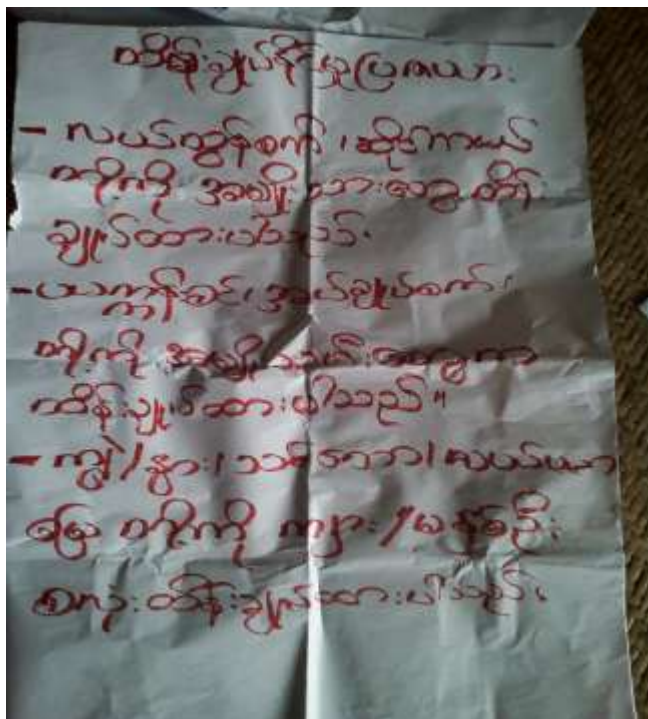 ထိန်းချုပ်နိုင်မှုပြဿယား
- လယ်ထွန်စက်၊ ဆိုင်ကယ်
တို့ကို အမျိုးသားတွေ ထိန်း
ချုပ်ထားပါသည်၊
- ယက္ကန်းစင်၊ အပ်ချုပ်စက်၊
တို့ကို အမျိုးသမီးတွေက
ထိန်းချုပ်ထားပါသည်။
- ကျွဲ/နွား/သစ်တော/လယ်ယာ
မြေ တို့ကို ကျား/မနှစ်ဦး
စလုံး ထိန်းချုပ်ထားပါသည်၊